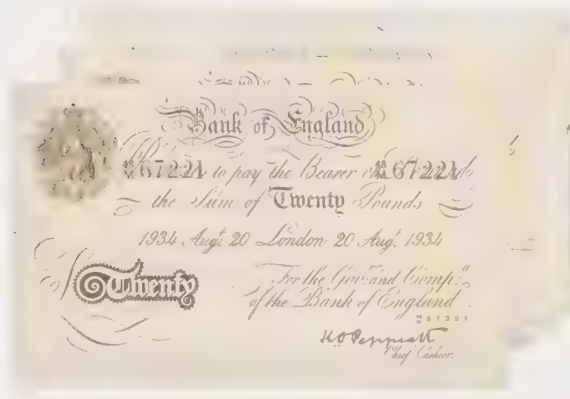 Bank of England
67221 to pay the Bearer on 67221
the Sum of Twenty Pounds
1934 Augt. 20 London 20 Augt. 1934
Twenty
For the Govr. and Compa.
of the Bank of England
K O Peppiatt
Chief Cashier.